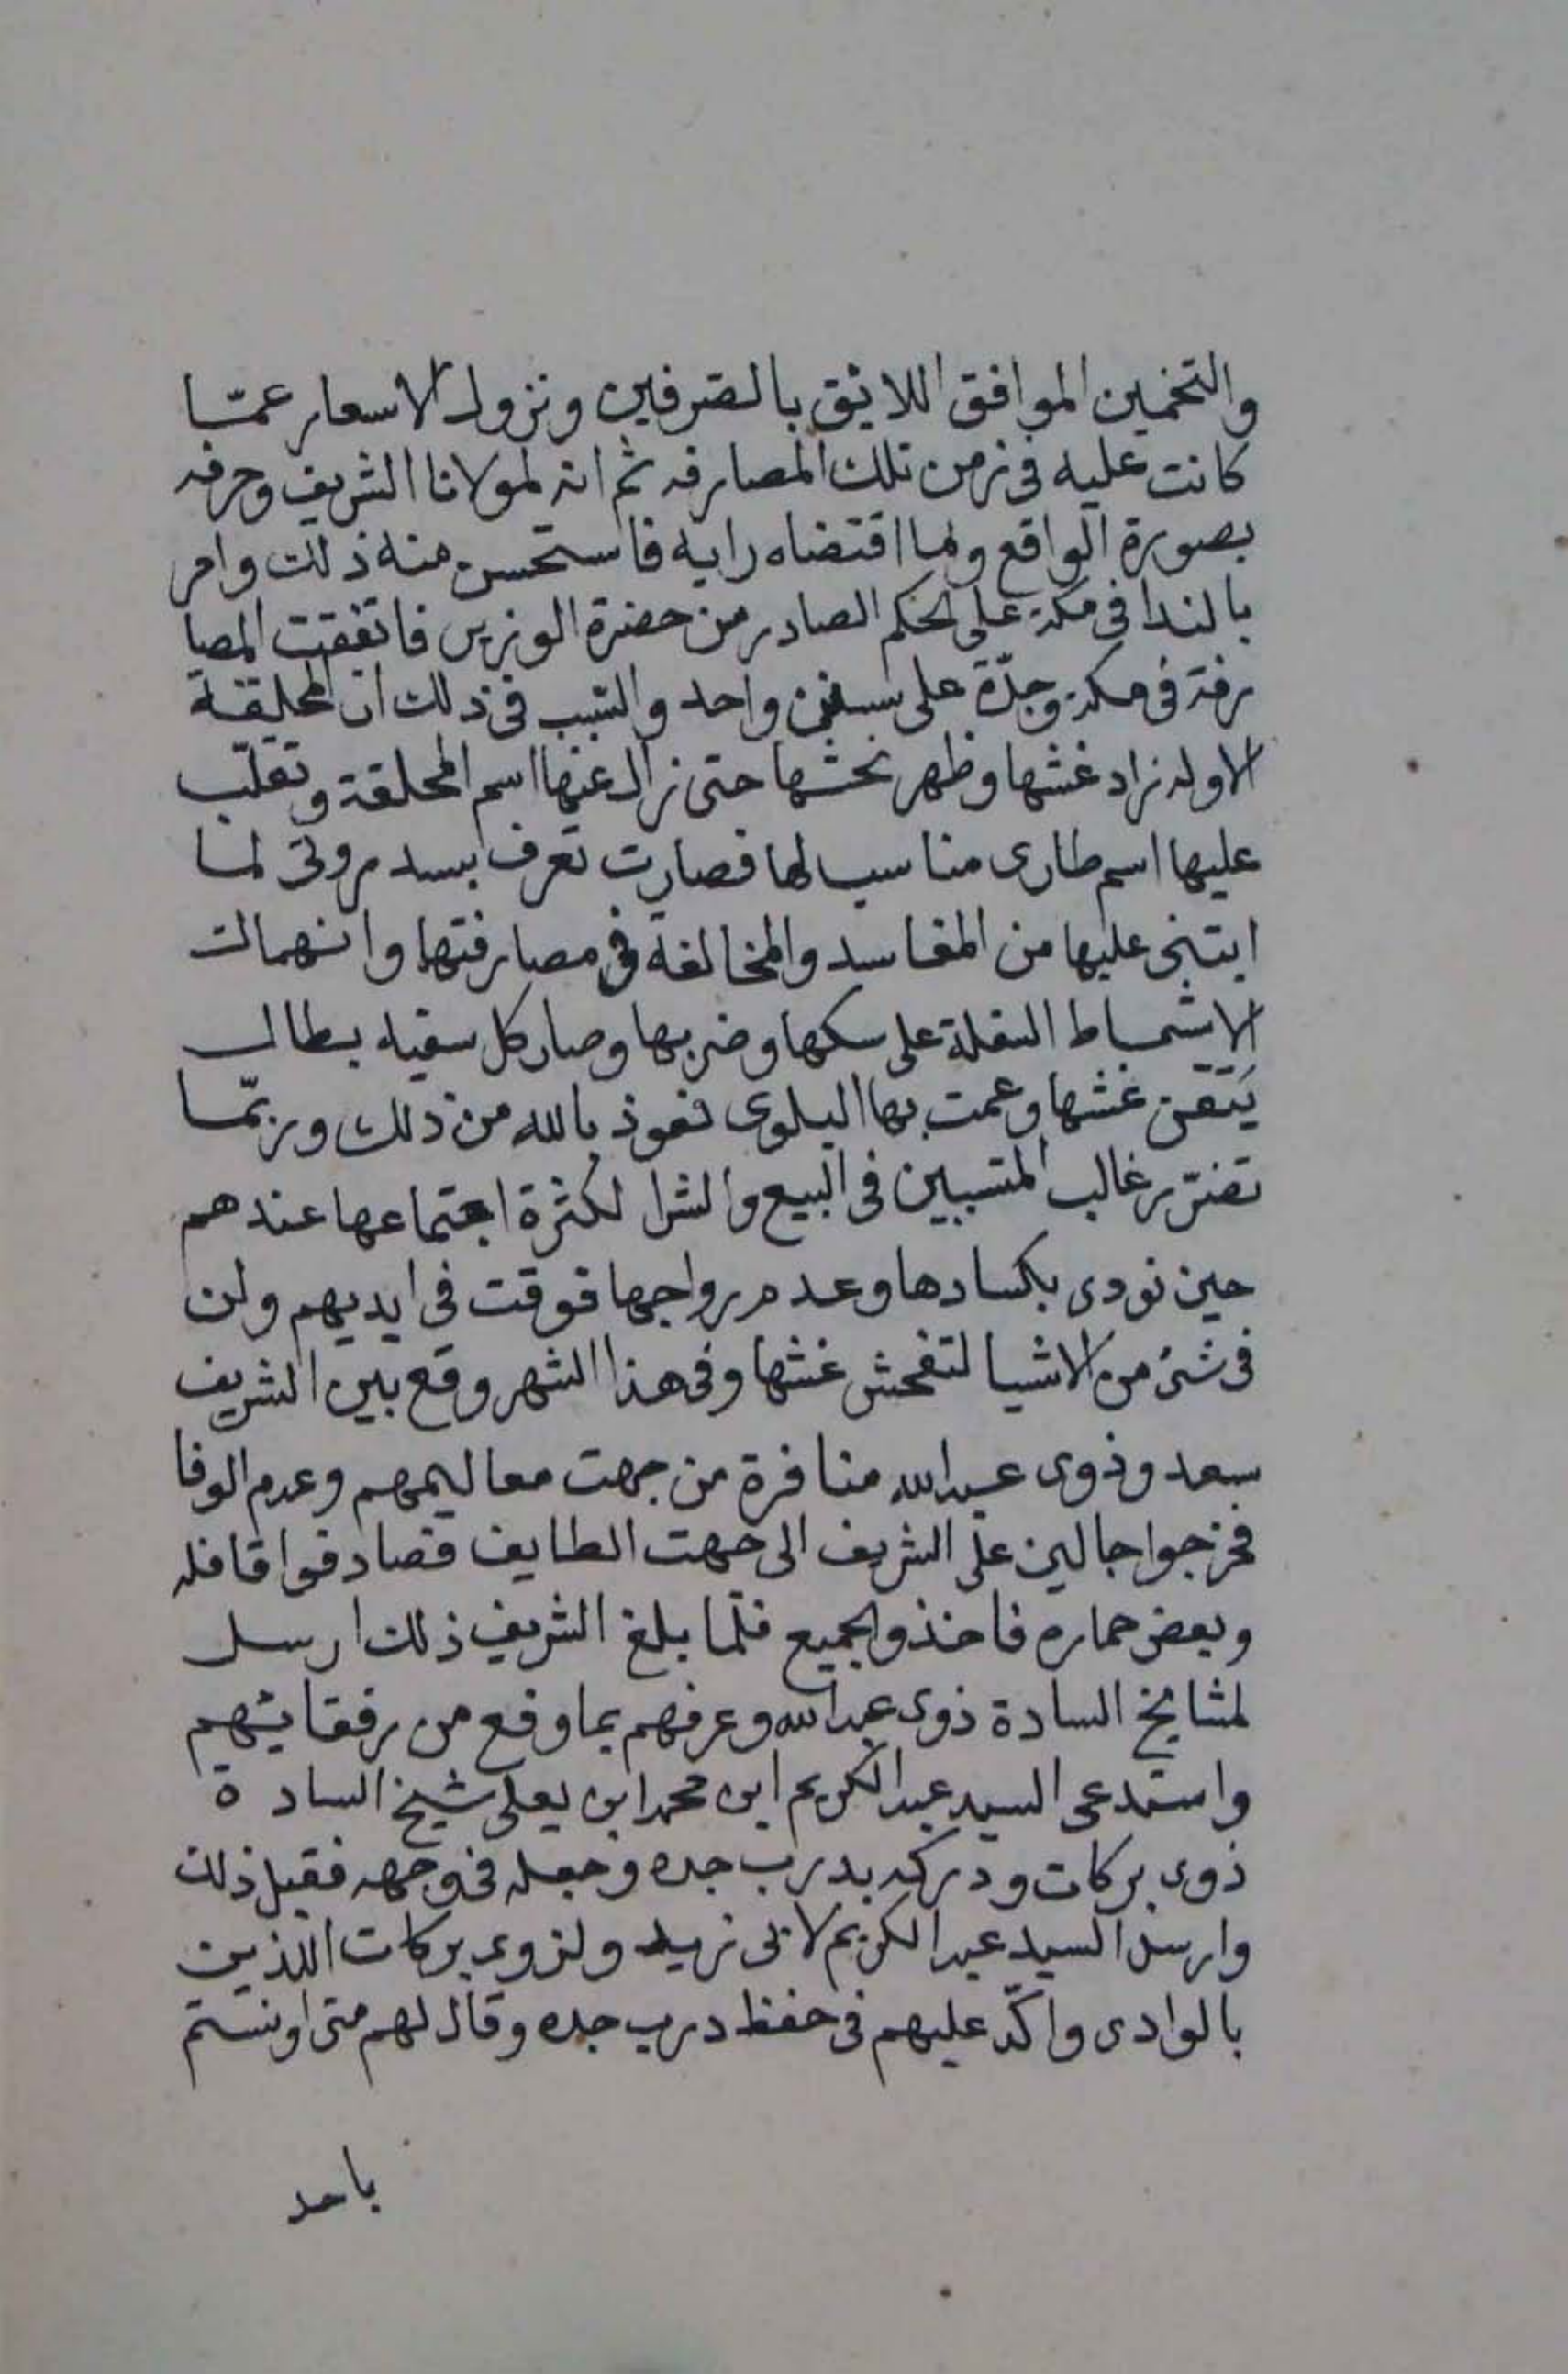 والتخمين الموافق اللايق بالصرفين ونزول الاسعار عمّا
كانت عليه فى زمن تلك المصارفه ثم انه لمولانا الشريف وحرفه
بصورة الواقع وبما اقتضاه رايه فاستحسن منه ذلك وامر
بالندا فى مكة على الحكم الصادر من حضرة الوزير فاتفقت المصا
رفة فى مكة وجدّة على سنن واحد والسبب فى ذلك ان المحلقة
الاوله زاد غشها وظهر نحشها حتى زال عنها اسم المحلقة وتغلّب
عليها اسم طارى مناسب لها فصارت تعرف بسد مروتى لما
ابتنى عليها من المفاسد والمخالفة فى مصارفتها وانهمالت
الاشماط السفلة على سكها وضربها وصار كل سفيه بطال
يتقن غشها وعمت بها البلوى نعوذ بالله من ذلك وربّما
تضرّر غالب المتسببين فى البيع والشرا لكثرة اجتماعها عندهم
حين نودى بكسادها وعدم رواجها فوقت فى ايديهم ولن
فى شئ من الاشيا لتفحش غشها وفى هذا الشهر وقع بين الشريف
سعد وذوى عبدالله منافرة من جهت معاليمهم وعدم الوفا
فخرجوا جالين على الشريف الى جهت الطايف فصادفوا قافله
وبعض حماره فاخذوا الجميع فلما بلغ الشريف ذلك ارسل
لمشايخ السادة ذوى عبدالله وعرفهم بما وقع من رفقايتهم
واستدعى السيد عبدالكريم ابن محمد ابن يعلى شيخ السادة
ذوى بركات ودركه بدرب جده وجعله فى وجهه فقبل ذلك
وارسل السيد عبدالكريم لابى نزيد ولذوى بركات اللذين
بالوادى واكّد عليهم فى حفظ درب جده وقال لهم متى اونستم
باحد